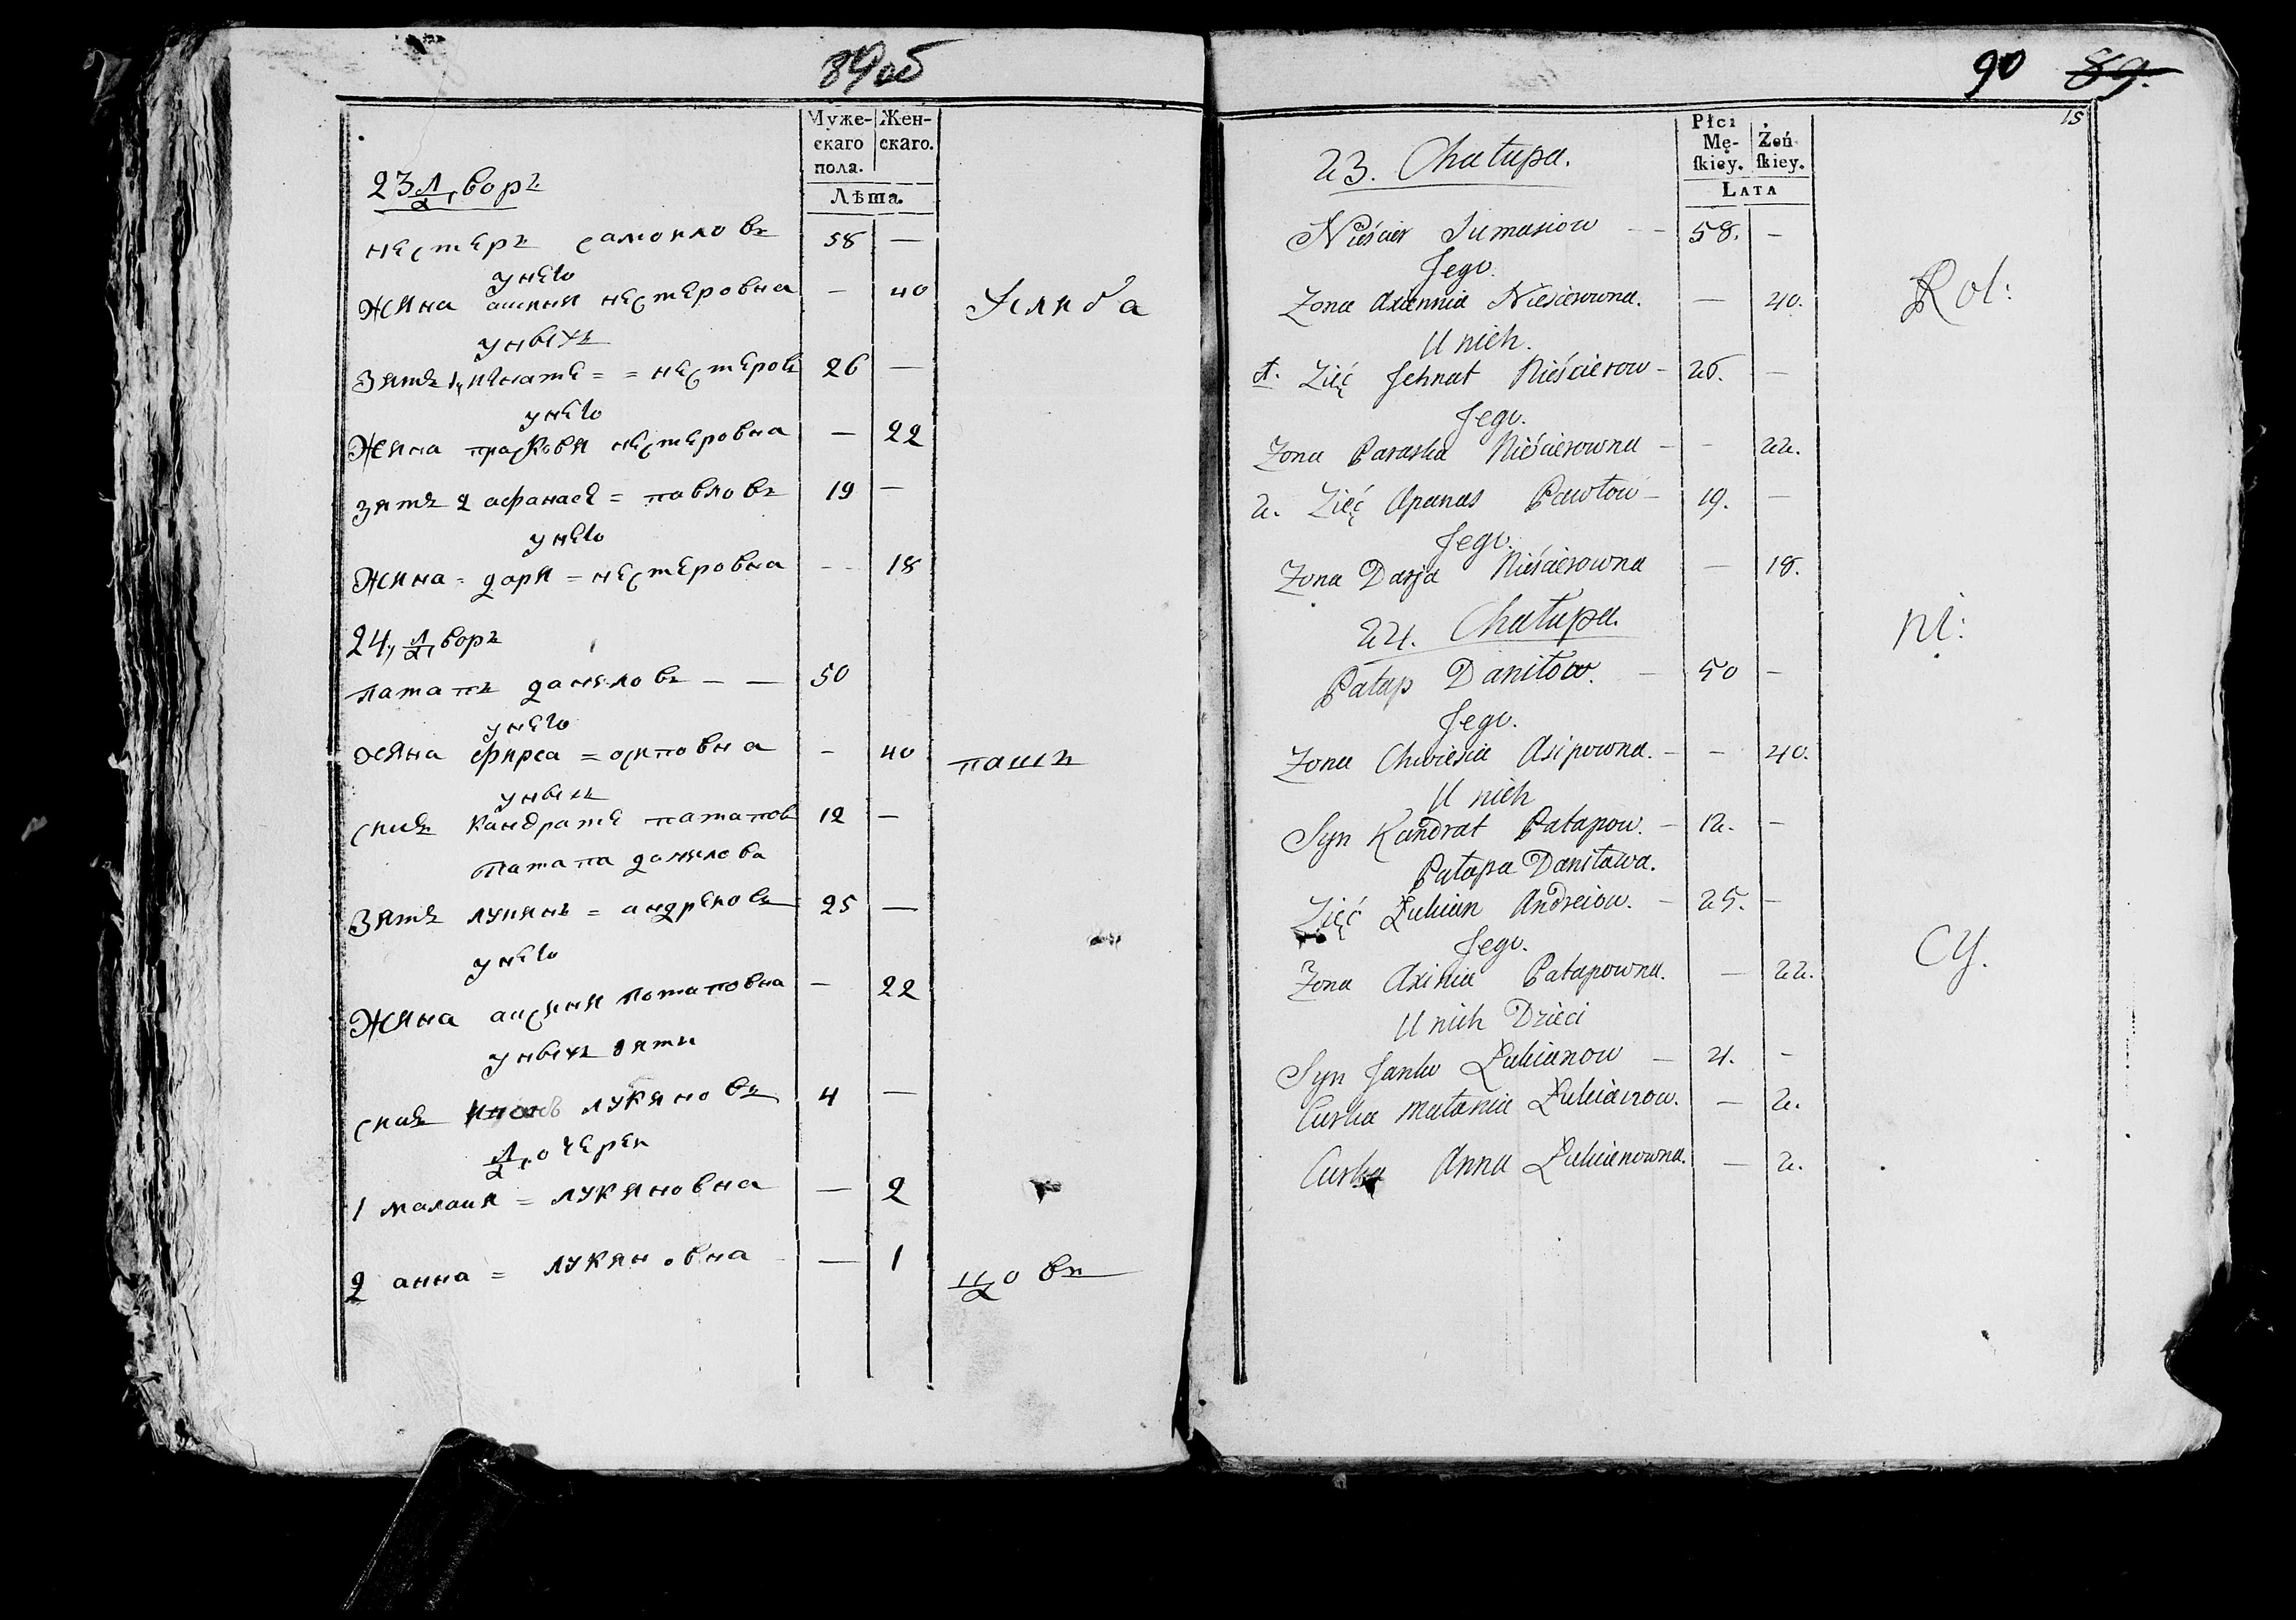 89об
Муже-
скаго
пола.
Жен-
скаго.
Лѣта.
23 Дворъ
нестеръ самоиловъ 58 —
унего
жена аксиня нестеровна — 40
унихъ
зять 1, игнате = = нестеровъ 26 —
унего
жена прасковя нестеровна — 22
зять 2 афанасе = павловъ 19 —
унего
жена = даря = нестеровна — 18
24, Дворъ
патапъ даниловъ — — 50
унего
жена = осиповна — 40
унихъ
синъ кандрате патаповъ 12 —
патапа данилова
зять лукянъ = андреновъ 25 —
унего
жена аксиня потаповна — 22
унихъ дяти
синъ лукяновъ 4 —
Дочереи
1 малания = лукяновна — 2
2 анна = лукяновна — 1
пашъ
90 89.
15
Płci
Mę-
ſkiey.
Żeń-
ſkiey.
LATA
23. Chałupa.
Nieścier Sumasiow — 58. —
Jego.
Zona Axiennia Nieścierowna. — 40.
U nich.
1. Zięć Jehnat Nieścierow — 26. —
Jego.
Zona Paraska Nieścierowna — - 22.
2. Zięć Apanas Pawłow — 19. —
Jego.
Zona Darja Nieścierowna — 18.
24. Chałupa.
Patap Daniłow. — 50 —
Jego.
Zona Chwiesia Asipowna. — - 40.
U nich
Syn Kandrat Patapow. — 12. —
Patapa Daniława.
Zięć Łukian Andreiow. — 25. —
Jego.
Zona Axinia Patapowna. — 22.
U nich Dzieci
Syn Janko Łukianow — 4. —
Curka Małania Łukianow. — 2.
Curka Anna Łukianowna. — 2.
Rol:
ni:
cy.